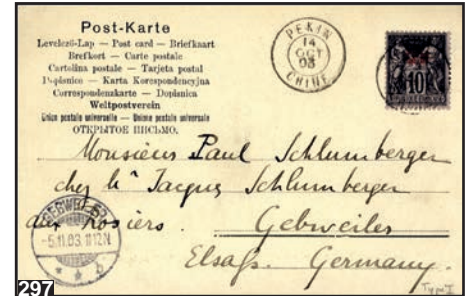 Post-Karte
Levelező-Lap — Post card — Briefkaart
Brefkort — Carte postale
Cartolina postale — Tarjeta postal
Dopisnice — Karta Korespondencyjna
Correspondenzkarte — Dopisnica
Weltpostverein
Union postale universelle — Unione postale universale
ОТКРЫТОЕ ПИСЬМО.
PEKIN
14
OCT
03
CHINE
10
Monsieur Paul Schlumberger
chez Mr Jacques Schlumberger
aux rosiers.
Gebweiler
Elsaß. Germany.
GEBWEILER
-5.11.03. 11-12N
b
Type I
297